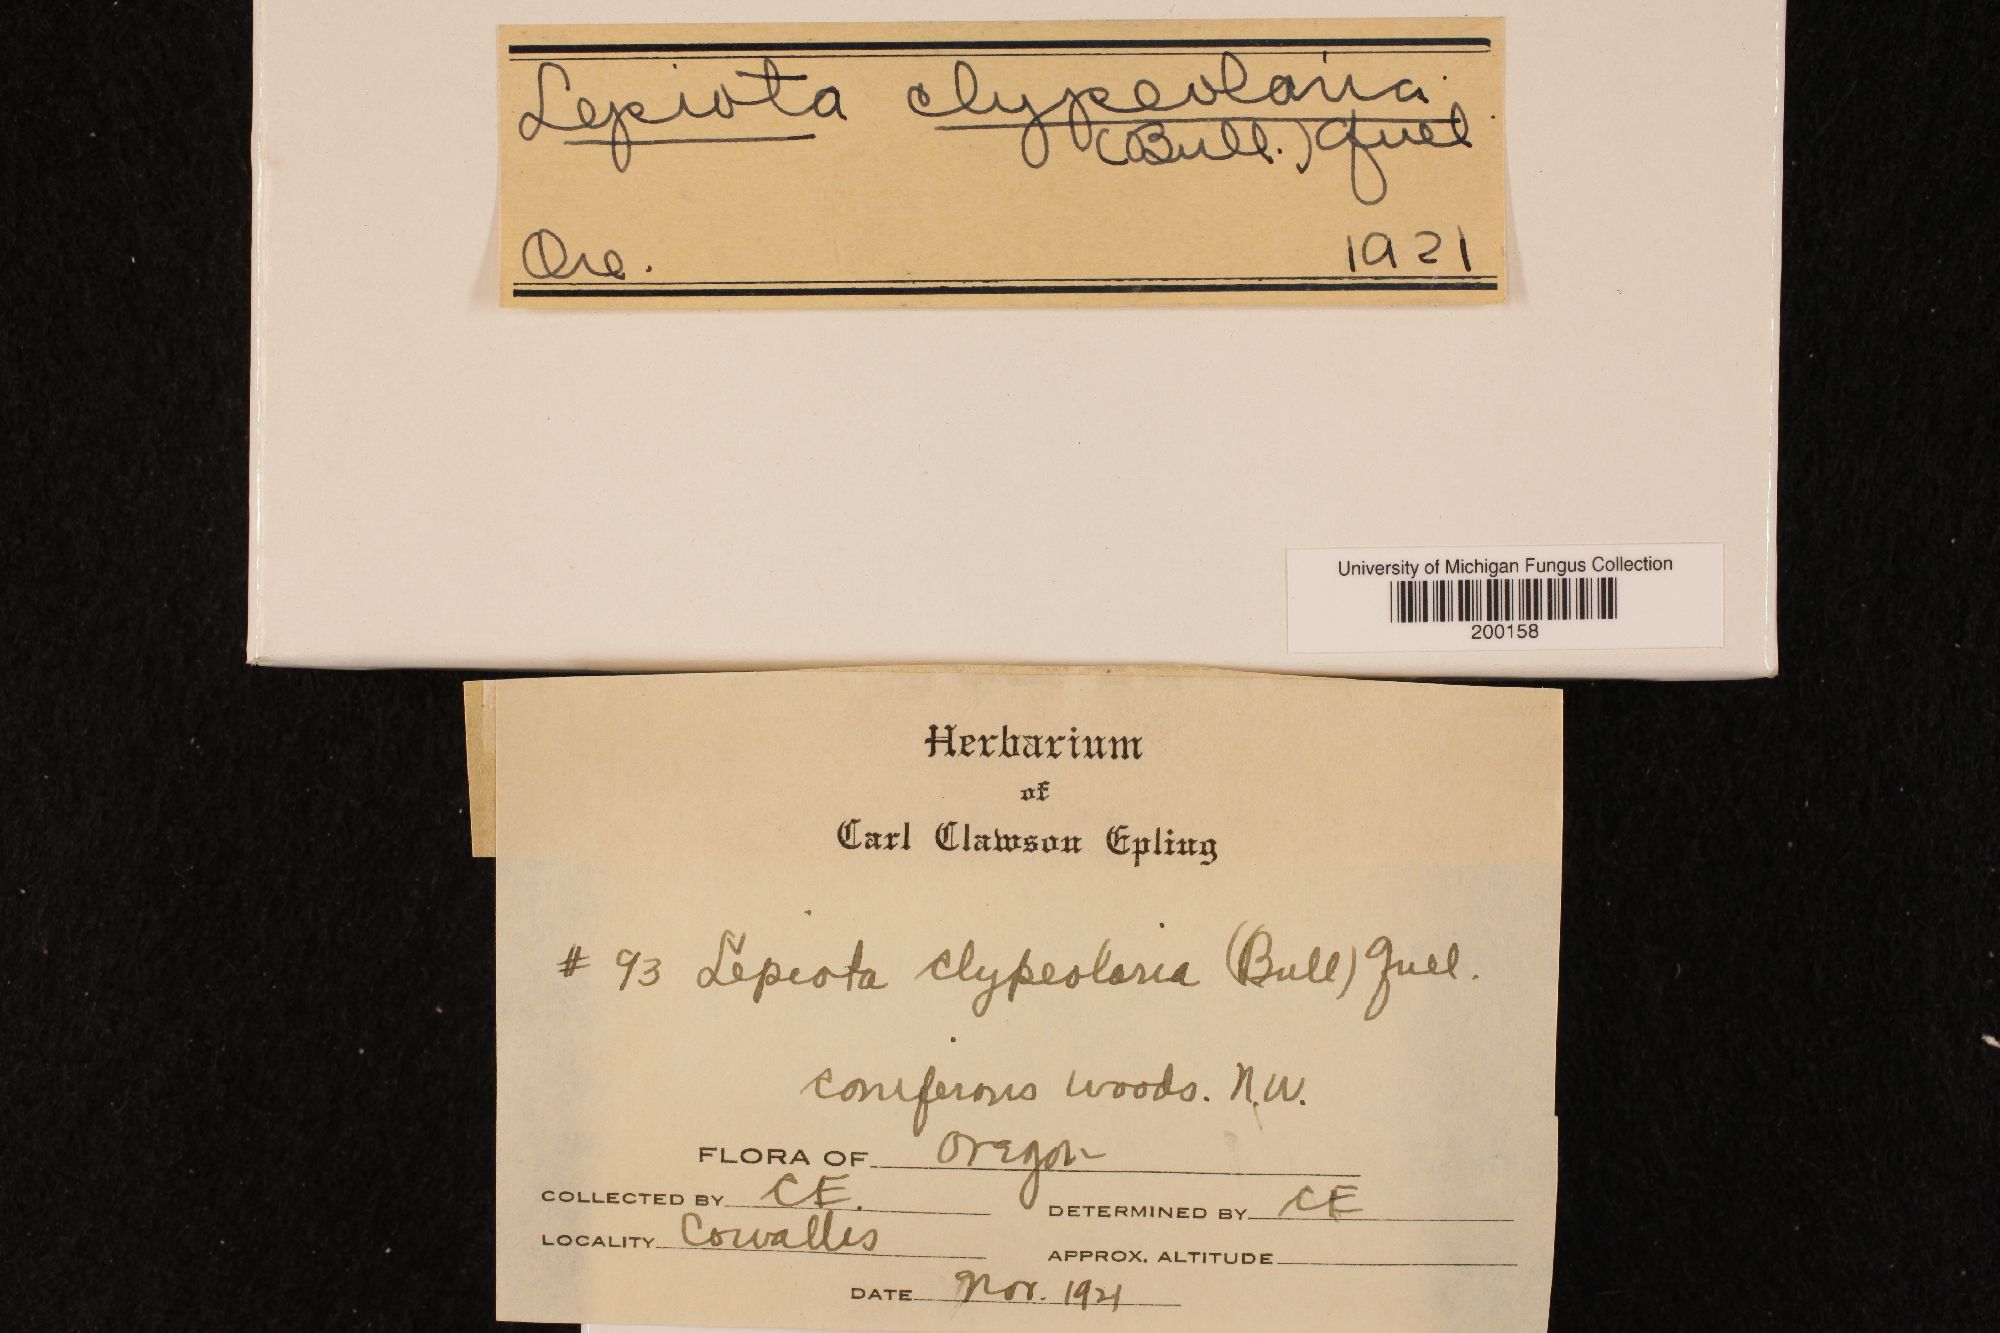 Lepiota clypeolaria
(Bull.) Quel
Ore. 1921
University of Michigan Fungus Collection
200158
Herbarium
of
Carl Clawson Epling
# 93 Lepiota clypeolaria (Bull) Quel.
coniferous woods. N.W.
FLORA OF Oregon
COLLECTED BY CE. DETERMINED BY CE
LOCALITY Corvallis APPROX. ALTITUDE
DATE Nov. 1921